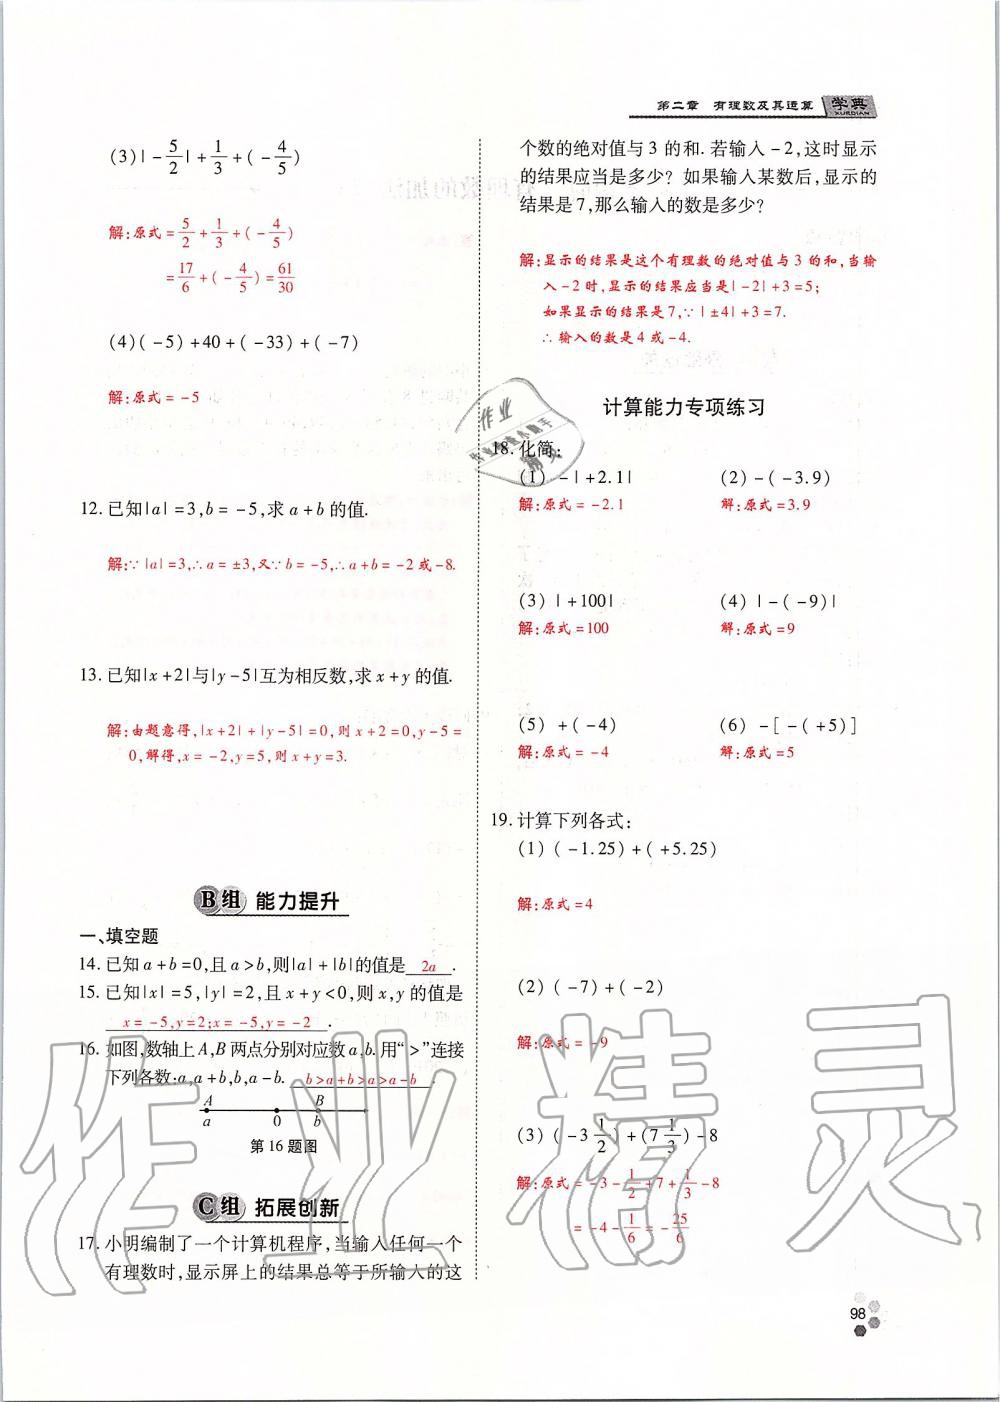 第二章 有理数及其运算 学典
XUEDIAN
(3)|-5/2|+1/3+(-4/5)
解:原式=5/2+1/3+(-4/5)
=17/6+(-4/5)=61/30
(4)(-5)+40+(-33)+(-7)
解:原式=-5
12.已知|a|=3,b=-5,求a+b的值.
解:∵|a|=3,∴a=±3,又∵b=-5,∴a+b=-2或-8.
13.已知|x+2|与|y-5|互为相反数,求x+y的值.
解:由题意得,|x+2|+|y-5|=0,则x+2=0,y-5=
0,解得,x=-2,y=5,则x+y=3.
B组 能力提升
一、填空题
14.已知a+b=0,且a>b,则|a|+|b|的值是 2a .
15.已知|x|=5,|y|=2,且x+y<0,则x,y的值是
x=-5,y=2;x=-5,y=-2 .
16.如图,数轴上A,B两点分别对应数a,b.用“>”连接
下列各数:a,a+b,b,a-b. b>a+b>a>a-b .
A B
a 0 b
第16题图
C组 拓展创新
17.小明编制了一个计算机程序,当输入任何一个
有理数时,显示屏上的结果总等于所输入的这
个数的绝对值与3的和.若输入-2,这时显示
的结果应当是多少?如果输入某数后,显示的
结果是7,那么输入的数是多少?
解:显示的结果是这个有理数的绝对值与3的和,当输
入-2时,显示的结果应当是|-2|+3=5;
如果显示的结果是7,∵|±4|+3=7.
∴输入的数是4或-4.
计算能力专项练习
18.化简:
(1)-|+2.1| (2)-(-3.9)
解:原式=-2.1 解:原式=3.9
(3)|+100| (4)|-(-9)|
解:原式=100 解:原式=9
(5)+(-4) (6)-[-(+5)]
解:原式=-4 解:原式=5
19.计算下列各式:
(1)(-1.25)+(+5.25)
解:原式=4
(2)(-7)+(-2)
解:原式=-9
(3)(-3 1/2)+(7 1/3)-8
解:原式=-3-1/2+7+1/3-8
=-4-1/6=-25/6
98
作业精灵